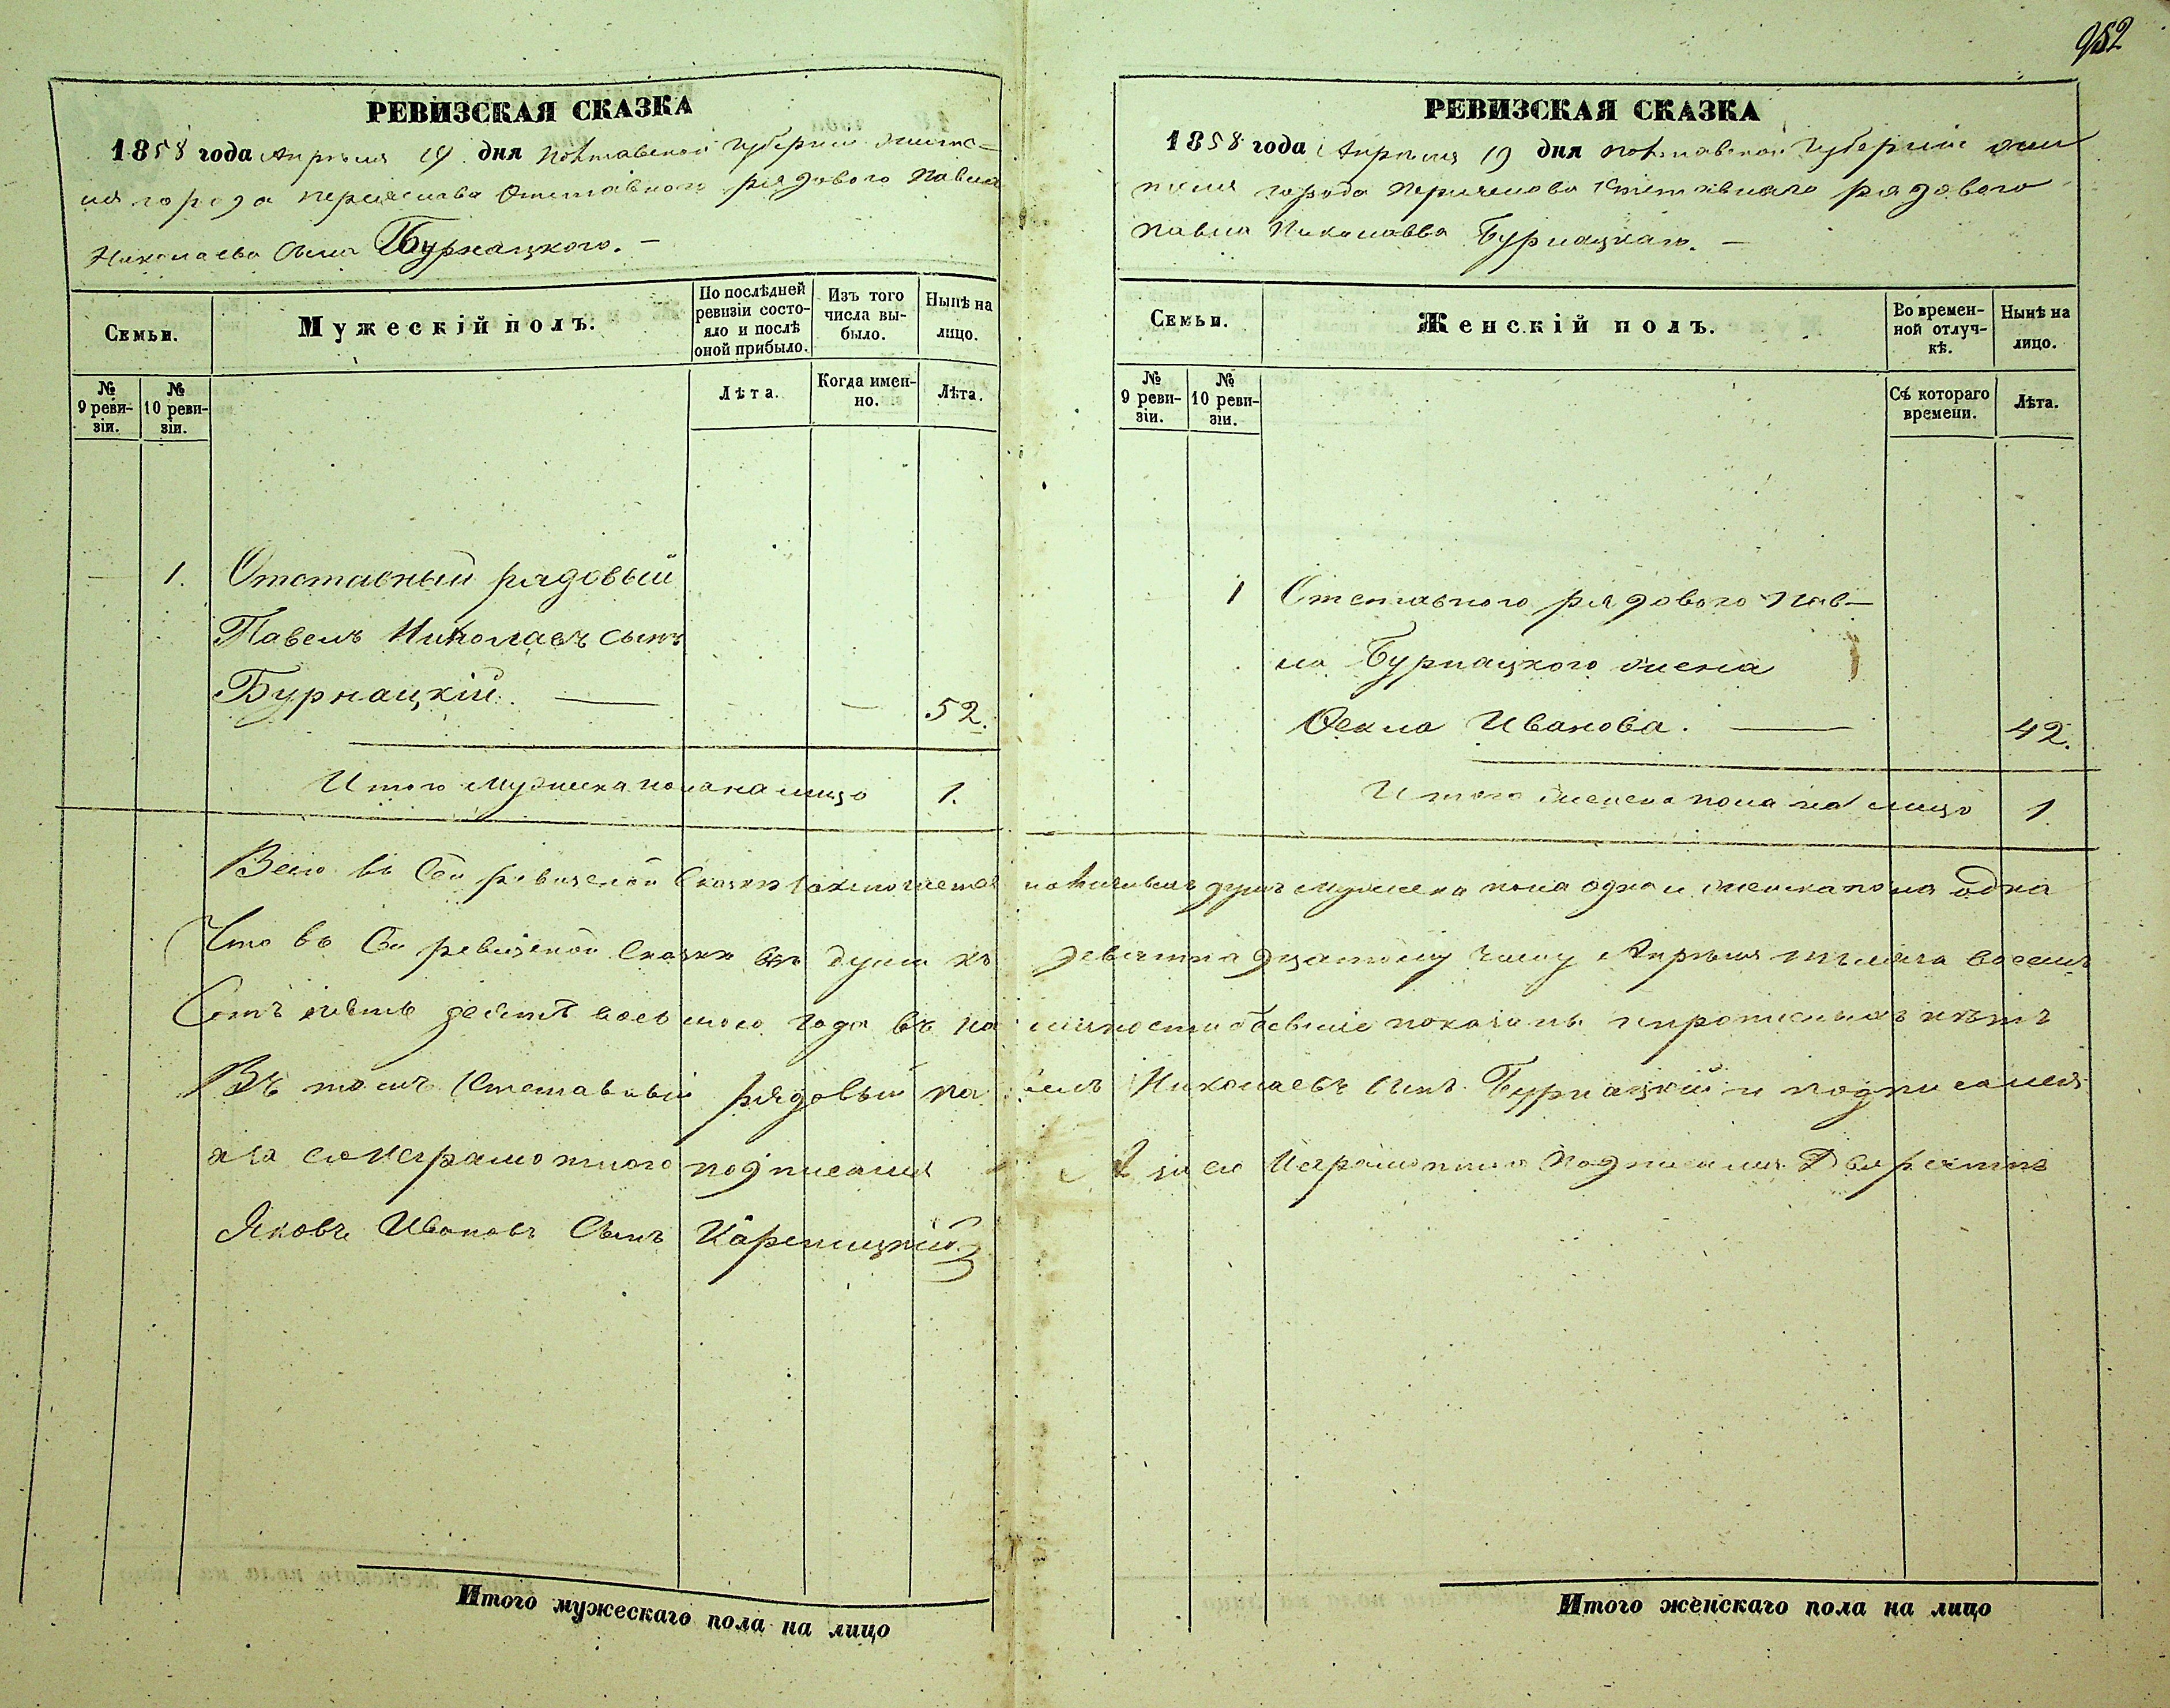 952
РЕВИЗСКАЯ СКАЗКА
1858 года Апреля 19 дня Полтавской Губернии жите-
ля города Переяслава Отставного рядового Павла
Николаева сына Бурнацкого. —
Семьи.
Мужескій полъ.
По послѣдней ревизіи состо-
яло и послѣ
оной прибыло.
Изъ того
числа вы-
было.
Нынѣ на
лицо.
№
9 реви-
зіи.
№
10 реви-
зіи.
Лѣта.
Когда имен-
но.
Лѣта.
— 1. Отставный рядовый
Павелъ Николаевъ сынъ
Бурнацкій. — — 52.
Итого мужеска пола на лицо 1.
РЕВИЗСКАЯ СКАЗКА
1858 года Апреля 19 дня Полтавской Губерніи жи
теля города Переяслава Отставнаго рядового
Павла Николаева Бурнацкаго. —
Семьи.
Женскій полъ.
Во времен-
ной отлуч-
кѣ.
Нынѣ на
лицо.
№
9 реви-
зіи.
№
10 реви-
зіи.
Съ котораго
времени.
Лѣта.
1 Отставного рядового Пав—
ла Бурнацкого жена
Фекла Иванова. — 42.
Итого женска пола на лицо 1
Всего въ Сей ревизской Сказки заключается наличныхъ душъ мужеска пола одна и женска пола одна
Что въ Сей ревизской Сказки всѣ души къ девятнадцатому числу Апреля тысяча восемъ
Сотъ пять десятъ восьмого года въ наличности бывшіе показаны и прописныхъ нѣтъ
Въ томъ Отставный рядовый Павелъ Николаевъ сынъ Бурнацкій и подписался
а за его неграмотного подписался
А за его Неграмотного Подписался Дворянинъ
Яковъ Ивановъ Сынъ
Итого мужескаго пола на лицо
Итого женскаго пола на лицо